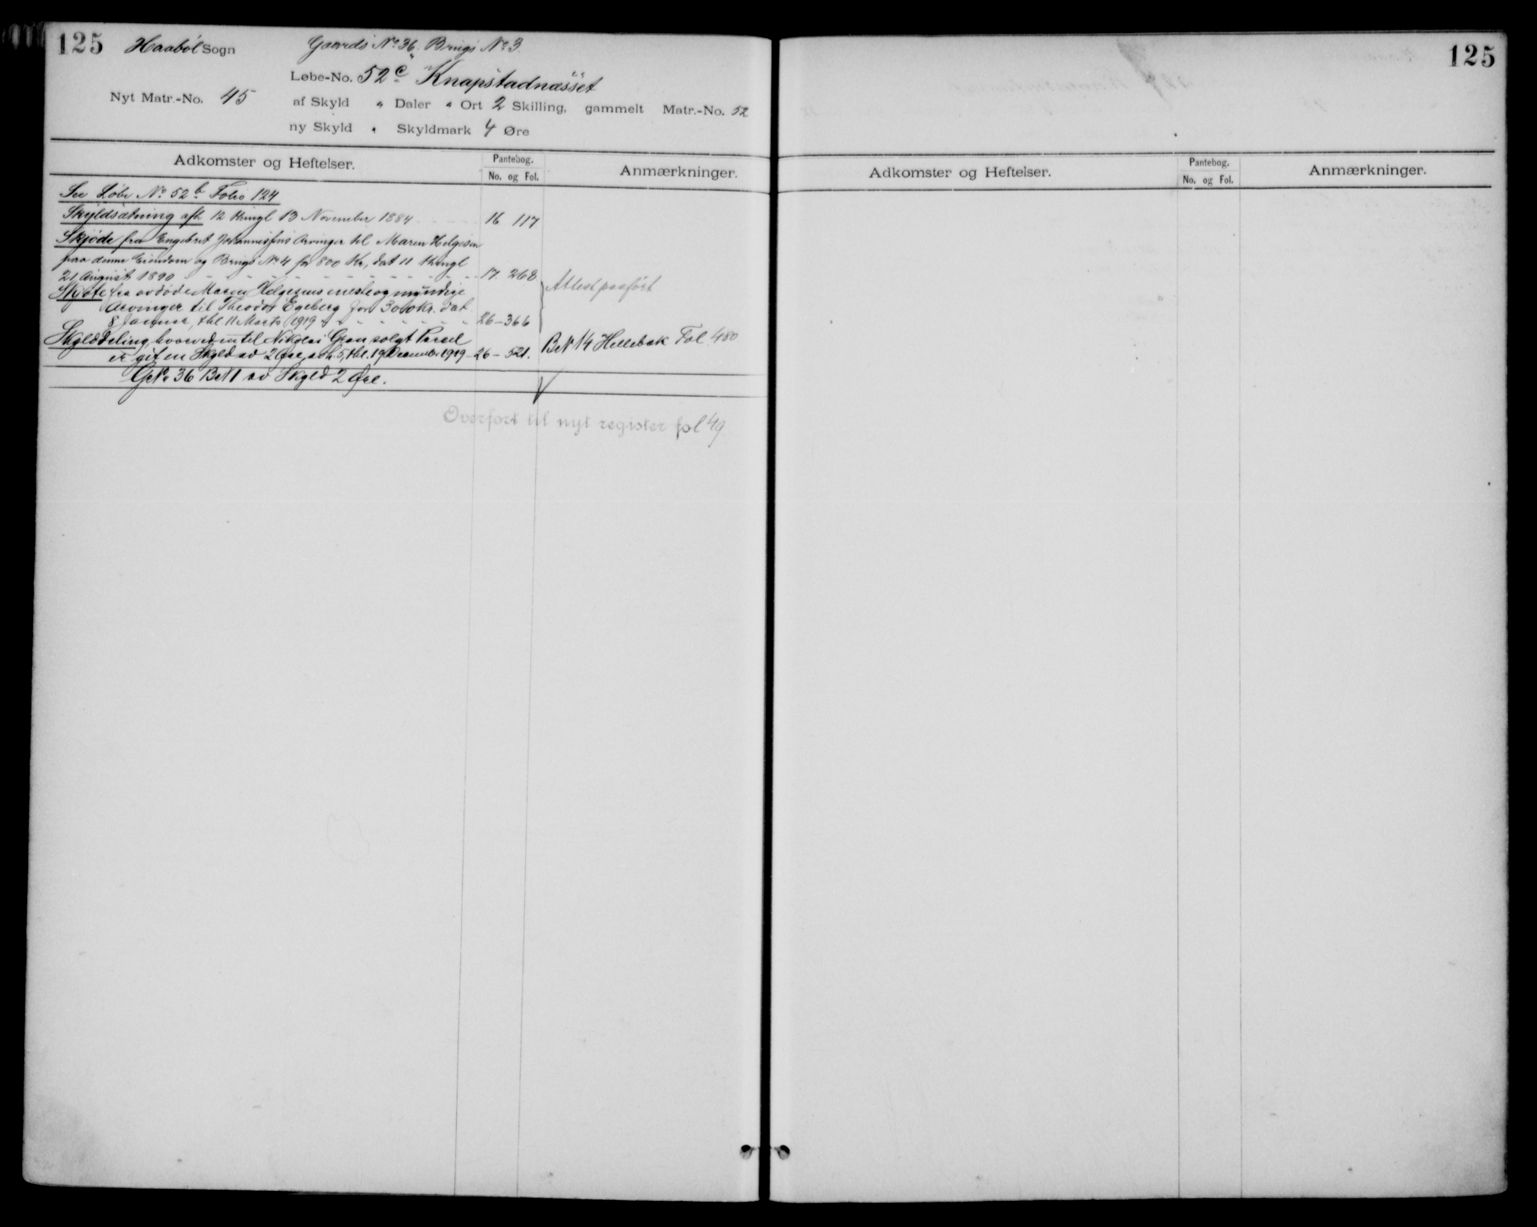 125 Haabøl Sogn Gaards No 36, Brugs No 3.
Løbe-No. 52 c Knapstadnæsset
Nyt Matr.-No. 45 af Skyld " Daler " Ort 2 Skilling, gammelt Matr.-No. 52
ny Skyld " Skyldmark 4 Øre
Adkomster og Heftelser. Pantebog. No. og Fol. Anmærkninger.
See Løbe No 52 b Folio 124
Skyldsætning afh. 12 thingl 13 November 1884 16 117
Skjøde fra Engebret Johannesens Arvinger til Maren Helgesen
paa denne Eiendom og Brugs No 4 for 800 Kr, dat 11 thingl
21 August 1890 17 268
Attest paaført
Skjøte fra avdøde Maren Helgesens eneste og myndige
Arvinger til Theodor Egeberg for 3000 kr. dat
8 Januar, thl 11 Marts 1919 26-366
Skylddeling hvorved en til Nikolai Gran solgt Parcel
er git en Skyld av 2 Øre, afh 5, thl. 19 December 1919 26-521. BNo 14 Hellebæk Fol 480
GNo 36 BNo 1 av Skyld 2 Øre.
Overført til nyt register fol 49.
125
Adkomster og Heftelser. Pantebog. No. og Fol. Anmærkninger.